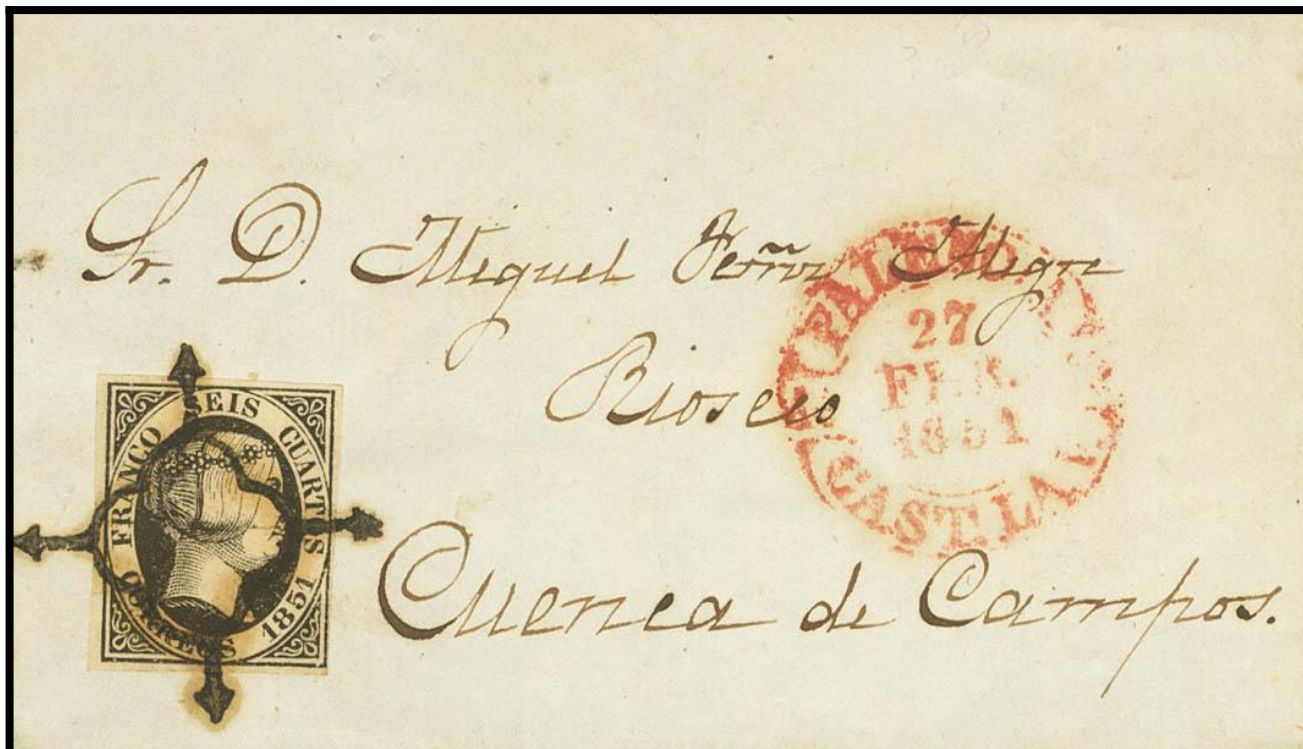 Sr. D. Miguel Alegre
Rioseco
Cuenca de Campos.
27
FEB.
1851
CAST. LA
FRANCO SEIS CUARTOS
CORREOS 1851